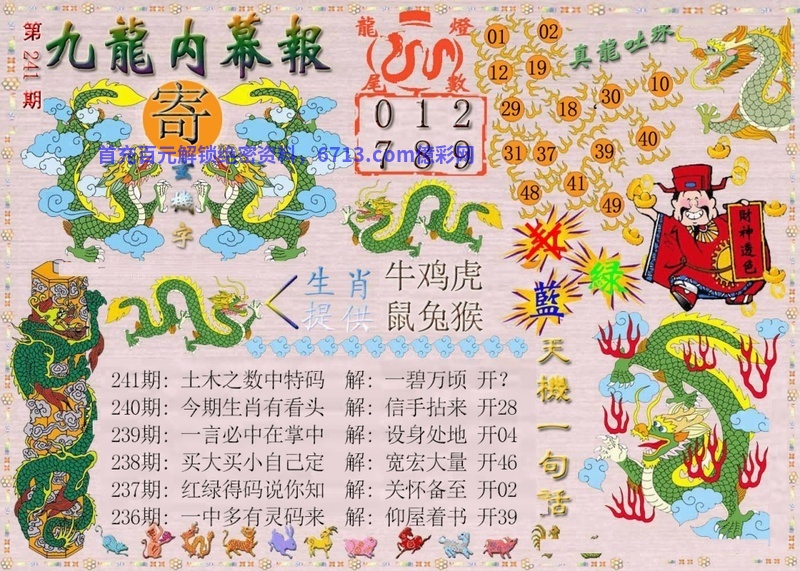 第241期
九龍内幕報
寄
玄機字
首充百元解锁绝密资料，6713.com精彩网
龍燈
尾數
0 1 2
7 8 9
真龍吐珠
01 02
12 19
29 18 30 10
31 37 39 40
48 41 49
财神送色
红
綠
藍
生肖提供
牛鸡虎
鼠兔猴
241期：土木之数中特码 解：一碧万顷 开？
240期：今期生肖有看头 解：信手拈来 开28
239期：一言必中在掌中 解：设身处地 开04
238期：买大买小自己定 解：宽宏大量 开46
237期：红绿得码说你知 解：关怀备至 开02
236期：一中多有灵码来 解：仰屋着书 开39
天機一句話